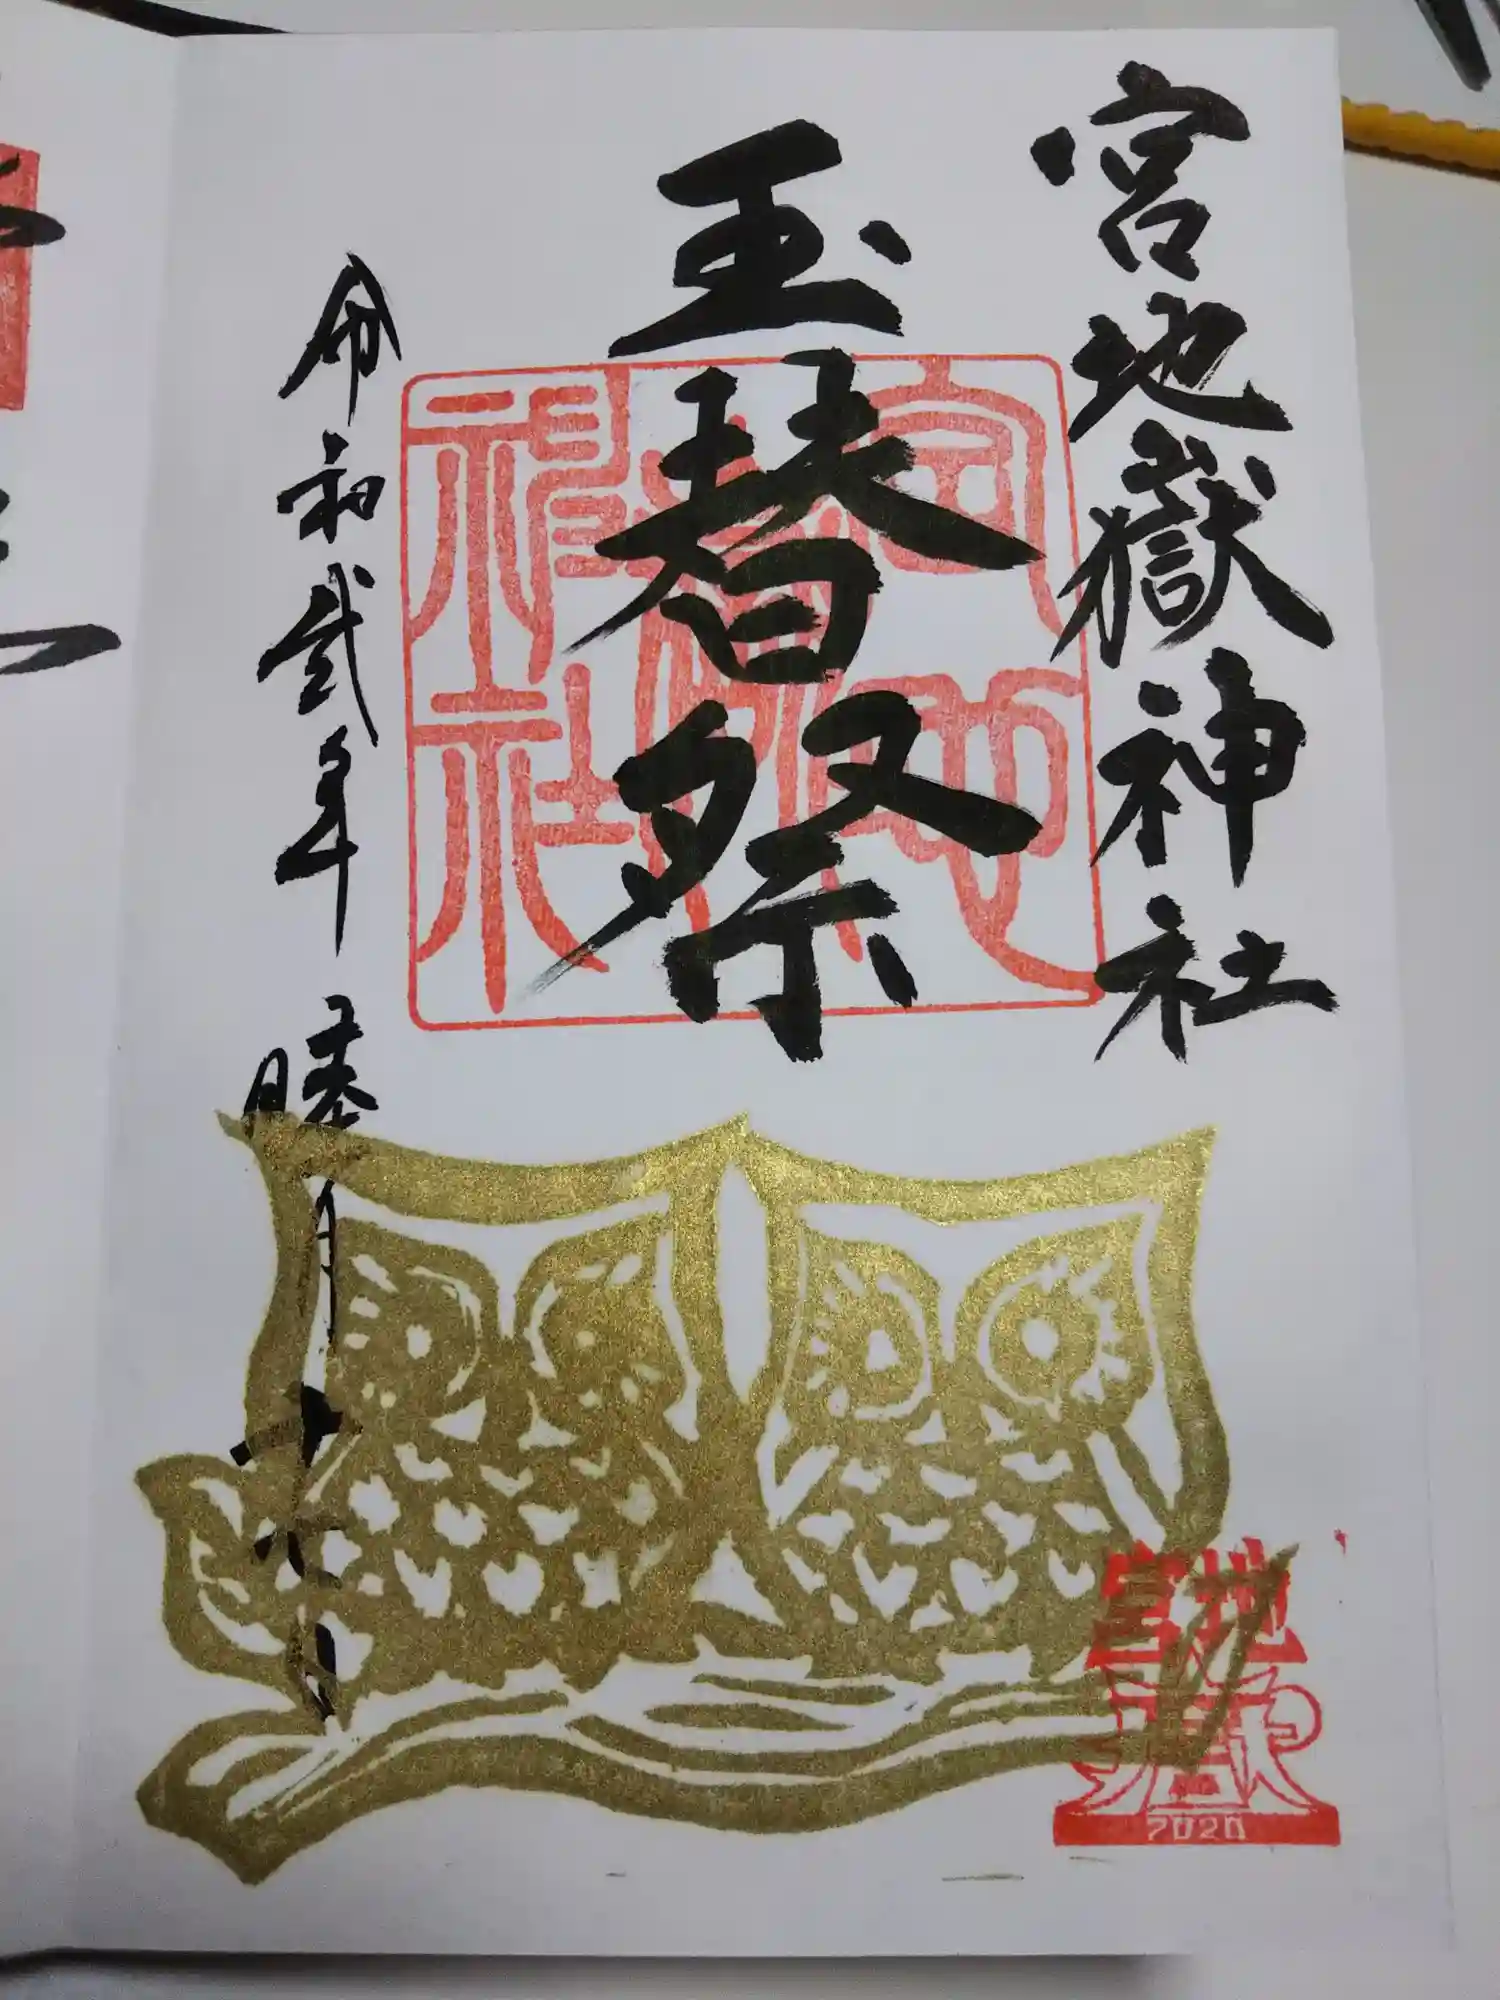 宮地嶽神社
玉替祭
令和弐年 睦月 十七日
宮地嶽神社
宮地嶽
2020